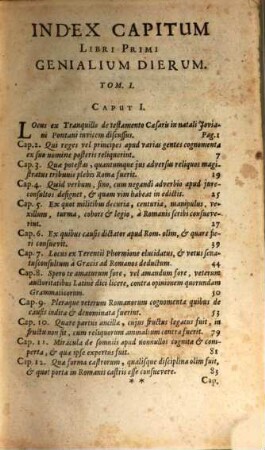 INDEX CAPITUM
LIBRI PRIMI
GENIALIUM DIERUM.
TOM. I.
CAPUT I.
Locus ex Tranquillo de testamento Cæsaris in natali Joviani
Pontani invicem discussus. Pag. 1
Cap. 2. Qui reges vel principes apud varias gentes cognomenta
ex suo nomine posteris reliquerint. 7
Cap. 3. Qua potestas, quantumque jus adversus reliquos magistratus
tribunis plebis Romæ fuerit. 19
Cap. 4. Quid verbum, sino, cum negandi adverbio apud jureconsultos
designet, & quam vim habeat in edictis. 25
Cap. 5. Ex quot militibus decuria, centuria, manipulus, vexillum,
turma, cohors & legio, à Romanis scribi consueverint.
27
Cap. 6. Ex quibus causis dictator apud Rom. olim, & quare fieri
consuevit. 39
Cap. 7. Locus ex Terentii Phormione elucidatus, & vetus senatusconsultum
à Græcis ad Romanos deductum. 44
Cap. 8. Spero te amaturum fore, vel amandum fore, veterum
auctoritatibus Latinè dici licere, contra opinionem quorundam
Grammaticorum. 50
Cap. 9. Pleraque veterum Romanorum cognomenta quibus de
causis indita & denominata fuerint. 53
Cap. 10. Quare partus ancillæ, cujus fructus legatus fuit, in
fructu non sit, cum reliquorum animalium contra fuerit. 79
Cap. 11. Miracula de somniis apud nonnullos cognita & comperta,
& qua ipse expertus fuit. 81
Cap. 12. Qua forma castrorum, qualisque disciplina olim fuit,
& quot porta in Romanis castris esse consuevere. 83
** Cap.